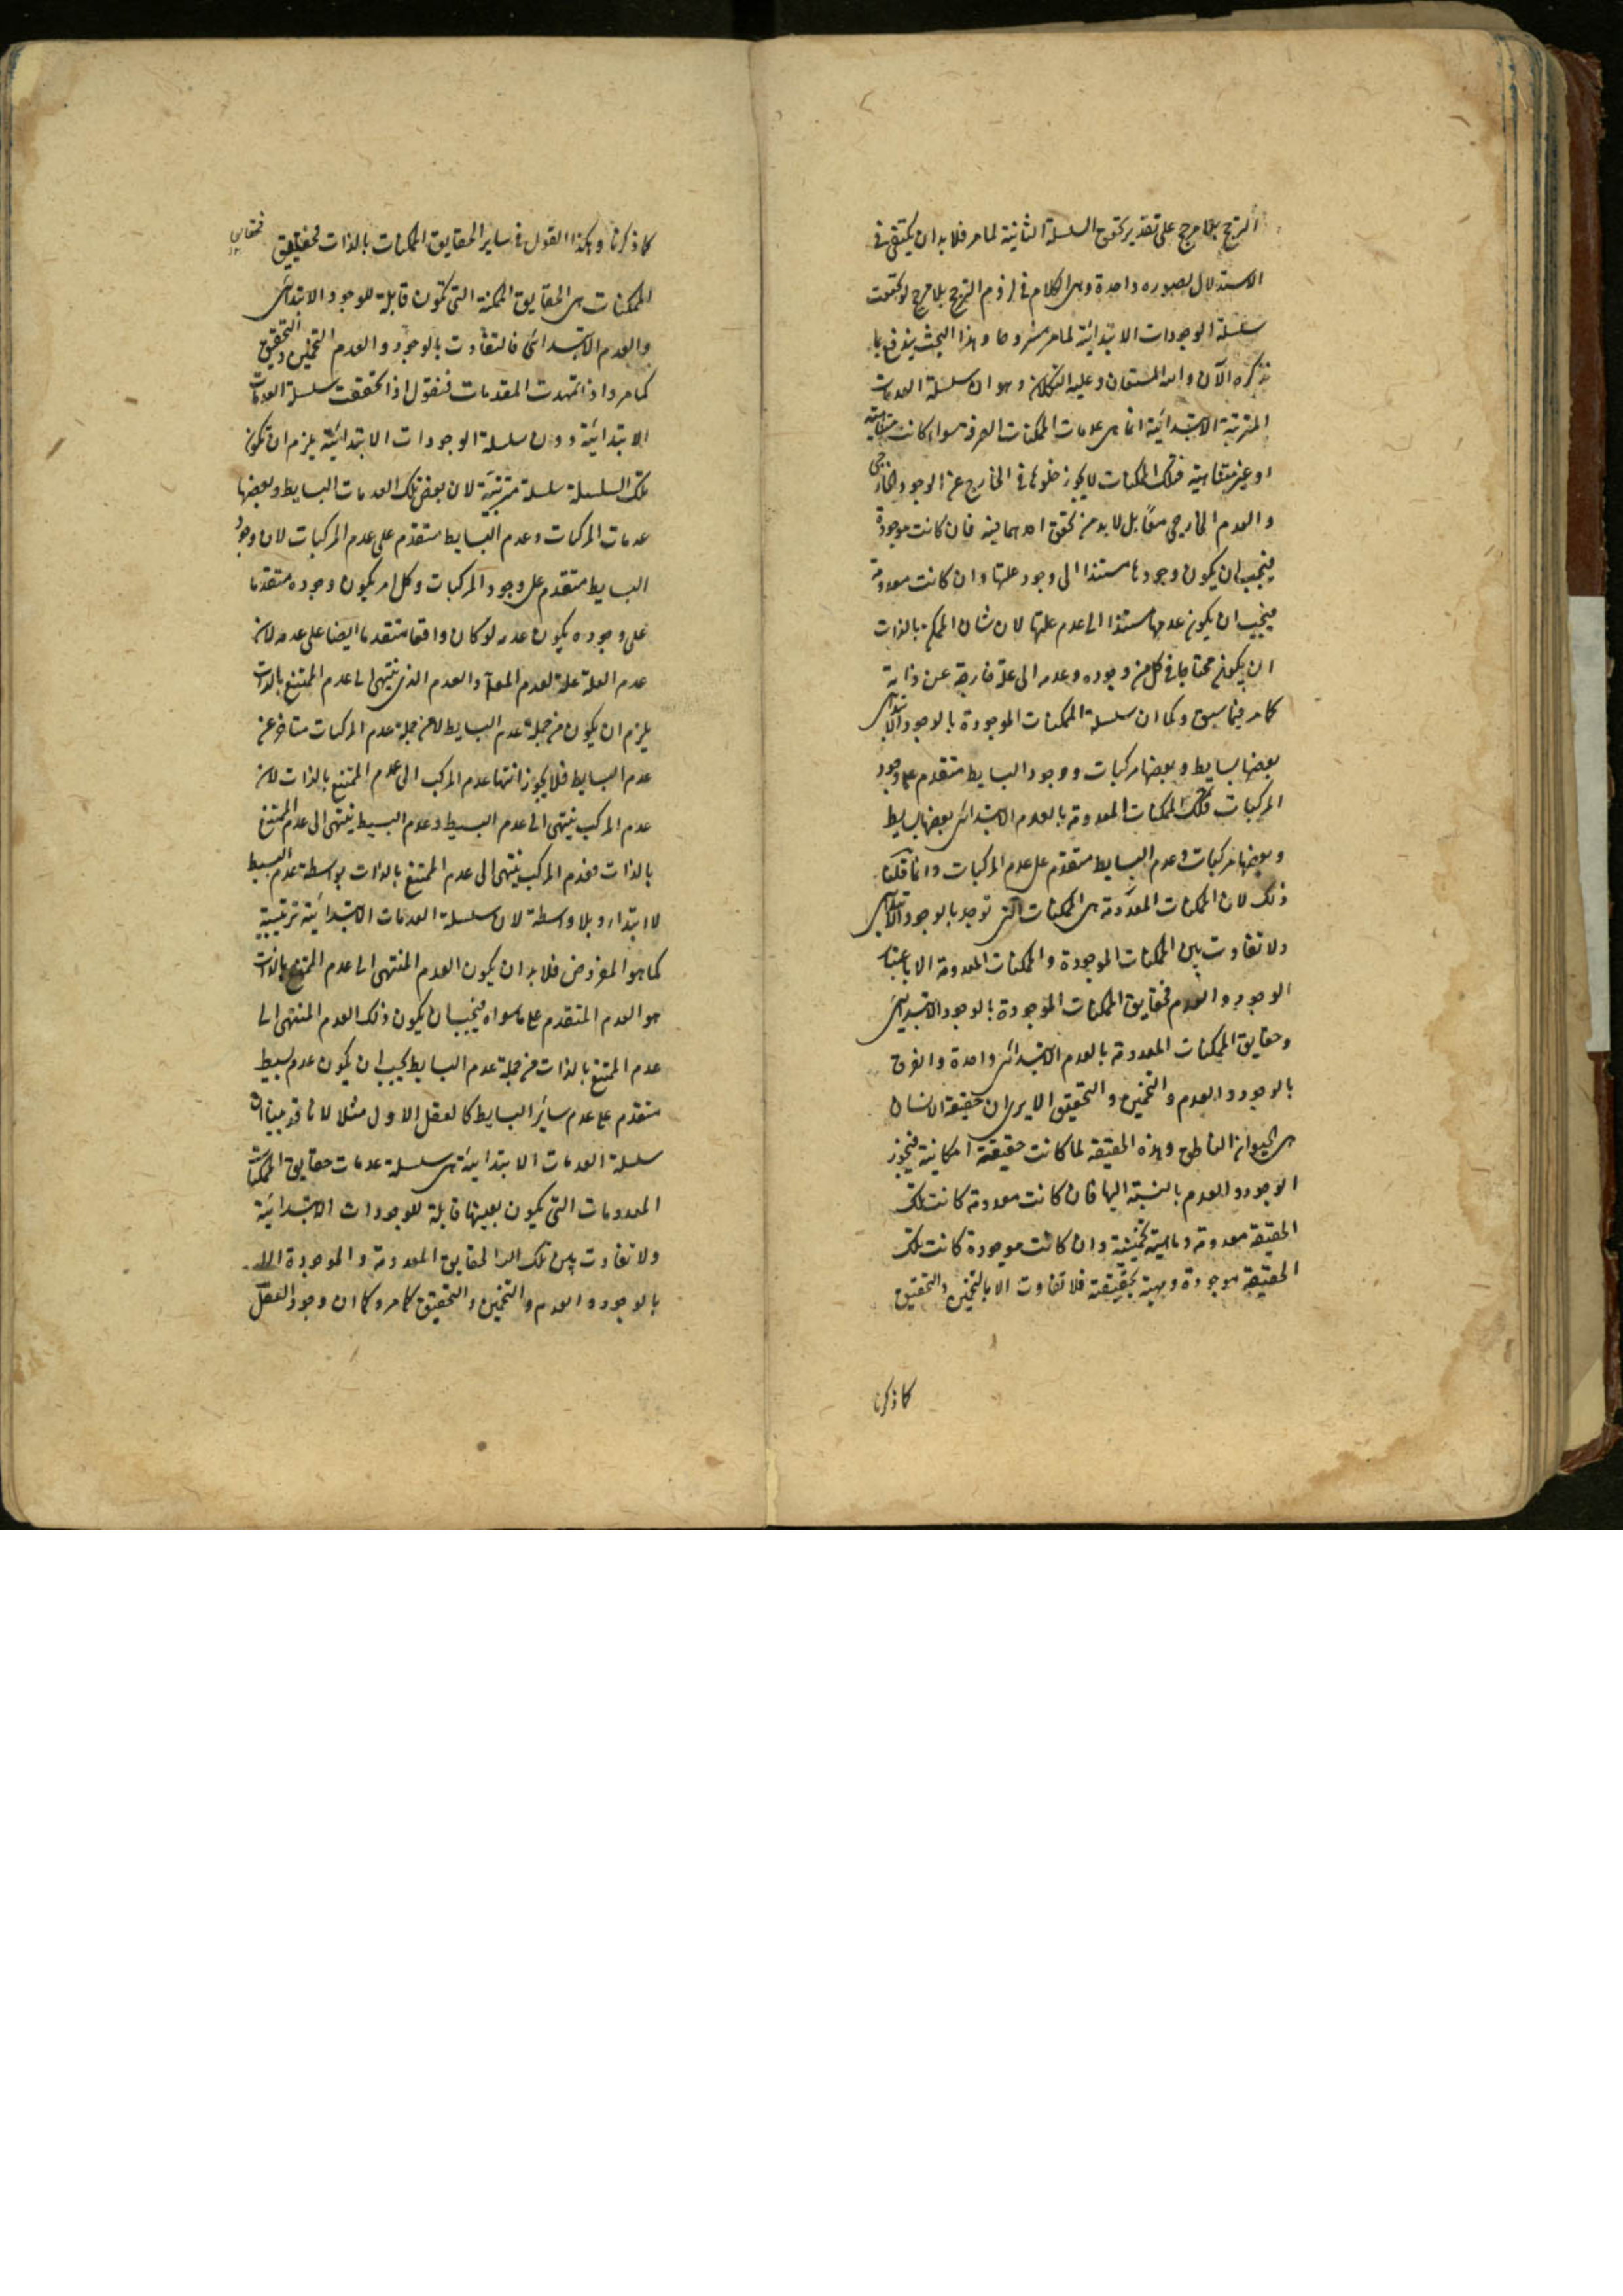 الترجح بلا مرجح على تقدير تحقق السلسلة الثانية لما مر فلا بد ان يكتفى فى
الاستدلال بصوره واحدة وهى الكلام فى لزوم الترجح بلا مرجح لو تحققت
سلسلة الوجودات الابتدائية لما مر مشروحا وهذا البحث يندفع بما
نذكره الآن والله المستعان وعليه التكلان وهو ان سلسلة العدمات
المترتبة الابتدائية انما هى عدمات الممكنات الصرفة سواء كانت متناهية
او غير متناهية فتلك الممكنات لا يجوز خلوها فى الخارج عن الوجود الخارجى
والعدم الخارجى مقابل لا بد من تحقق احدهما فيه فان كانت موجودة
فيجب ان يكون وجودها مستندا الى وجود علتها وان كانت معدومة
فيجب ان يكون عدمها مستندا الى عدم علتها لان شان الممكن بالذات
ان يكون محتاجا فى كل من وجوده وعدمه الى علة خارجة عن ذاته
كما مر فيما سبق وكما ان سلسلة الممكنات الموجودة بالوجود الابتدائى
بعضها بسايط وبعضها مركبات ووجود البسايط متقدم على وجود
المركبات فتلك الممكنات المعدومة بالعدم الابتدائى بعضها بسايط
وبعضها مركبات وعدم البسايط متقدم على عدم المركبات وانما قلنا
ذلك لان الممكنات المعدومة هى الممكنات التى توجد بالوجود الابتدائى
ولا تفاوت بين الممكنات الموجودة والممكنات المعدومة الا باعتبار
الوجود والعدم فحقايق الممكنات الموجودة بالوجود الابتدائى
وحقايق الممكنات المعدومة بالعدم الابتدائى واحدة والفرق
بالوجود والعدم والتخمين والتحقيق الا يرى ان حقيقة الانسان
هى الحيوان الناطق وهذه الحقيقة لما كانت حقيقة امكانية فيجوز
الوجود والعدم بالنسبة اليها فان كانت معدومة كانت تلك
الحقيقة معدومة وماهية تخمينية وان كانت موجودة كانت تلك
الحقيقة موجودة وهية تحقيقية فلا تفاوت الا بالتخمين والتحقيق
كما ذكرنا
كما ذكرنا وهكذا القول فى ساير الحقايق الممكنات بالذات فحقايق
الممكنات هى الحقايق الممكنة التى تكون قابلة للوجود الابتدائى
والعدم الابتدائى فالتفاوت بالوجود والعدم التخمين والتحقيق
كما مر واذا تمهدت المقدمات فنقول اذا تحققت سلسلة العدمات
الابتدائية دون سلسلة الوجودات الابتدائية يلزم ان تكون
تلك السلسلة سلسلة مترتبة لان بعض تلك العدمات البسايط وبعضها
عدمات المركبات وعدم البسايط متقدم على عدم المركبات لان وجود
البسايط متقدم على وجود المركبات وكل امر يكون وجوده متقدما
على وجوده يكون عدمه لو كان واقعا متقدما ايضا على عدمه لان
عدم العلة علة لعدم المعلول والعدم الذى ينتهى الى عدم الممتنع بالذات
يلزم ان يكون من جملة عدم البسايط لا من جملة عدم المركبات متاخر عن
عدم البسايط فلا يجوز انتها عدم المركب الى عدم الممتنع بالذات لان
عدم المركب ينتهى الى عدم البسيط وعدم البسيط ينتهى الى عدم الممتنع
بالذات فعدم المركب ينتهى الى عدم الممتنع بالذات بواسطة عدم البسيط
لا ابتداء وبلا واسطة لان سلسلة العدمات الابتدائية ترتيبية
كما هو المفروض فلا بد ان يكون العدم المنتهى الى عدم الممتنع بالذات
هو العدم المتقدم على ما سواه فيجب ان يكون ذلك العدم المنتهى الى
عدم الممتنع بالذات من جملة عدم البسايط يجب ان يكون عدم بسيط
متقدم على عدم سائر البسايط كالعقل الاول مثلا لانا قد بينا ان
سلسلة العدمات الابتدائية هى سلسلة عدمات حقايق الممكنات
المعدومات التى يكون بعينها قابلة للوجودات الابتدائية
ولا تفاوت بين تلك الحقايق المعدومة والموجودة الا
بالوجود والعدم والتخمين والتحقيق كما مر وكما ان وجود العقل